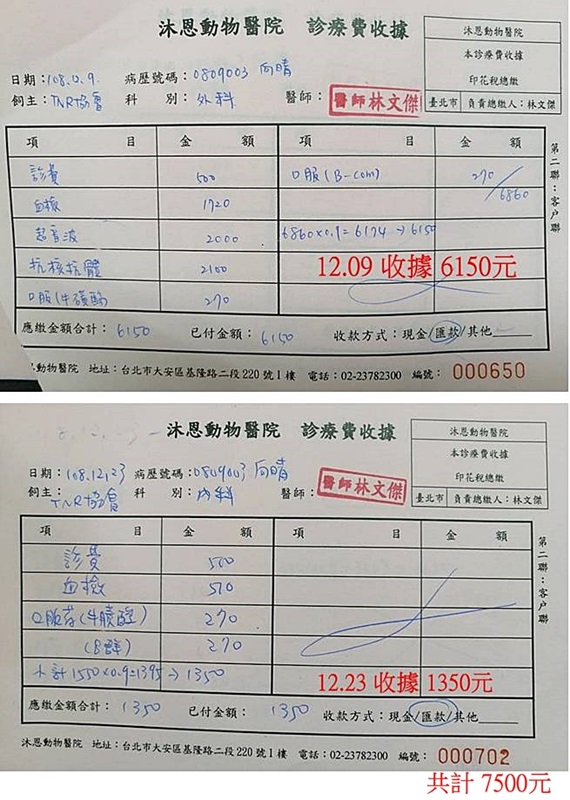 沐恩動物醫院 診療費收據
沐恩動物醫院
本診療費收據
印花稅總繳
臺北市 負責總繳人：林文傑
日期：108.12.9. 病歷號碼：0809003 向晴
飼主：TNR協會 科 別：外科 醫師： 醫師林文傑
項 目 金 額 項 目 金 額
診費 500 口服(B-com) 270/6860
血檢 1720
超音波 2000 6860x0.9=6174→6150
抗核抗體 2100 12.09 收據 6150元
口服(牛磺酸) 270
應繳金額合計：6150 已付金額：6150 收款方式：現金/匯款/其他
第二聯：客戶聯
恩動物醫院 地址：台北市大安區基隆路二段220號1樓 電話：02-23782300 編號：000650
沐恩動物醫院 診療費收據
沐恩動物醫院
本診療費收據
印花稅總繳
臺北市 負責總繳人：林文傑
日期：108.12.23 病歷號碼：0809003 向晴
飼主：TNR協會 科 別：內科 醫師： 醫師林文傑
項 目 金 額 項 目 金 額
診費 500
血檢 510
口服葯(牛膜酸) 270
(B群) 270
小計 1550x0.9=1395→1350 12.23 收據 1350元
應繳金額合計：1350 已付金額：1350 收款方式：現金/匯款/其他
第二聯：客戶聯
沐恩動物醫院 地址：台北市大安區基隆路二段220號1樓 電話：02-23782300 編號：000702
共計 7500元